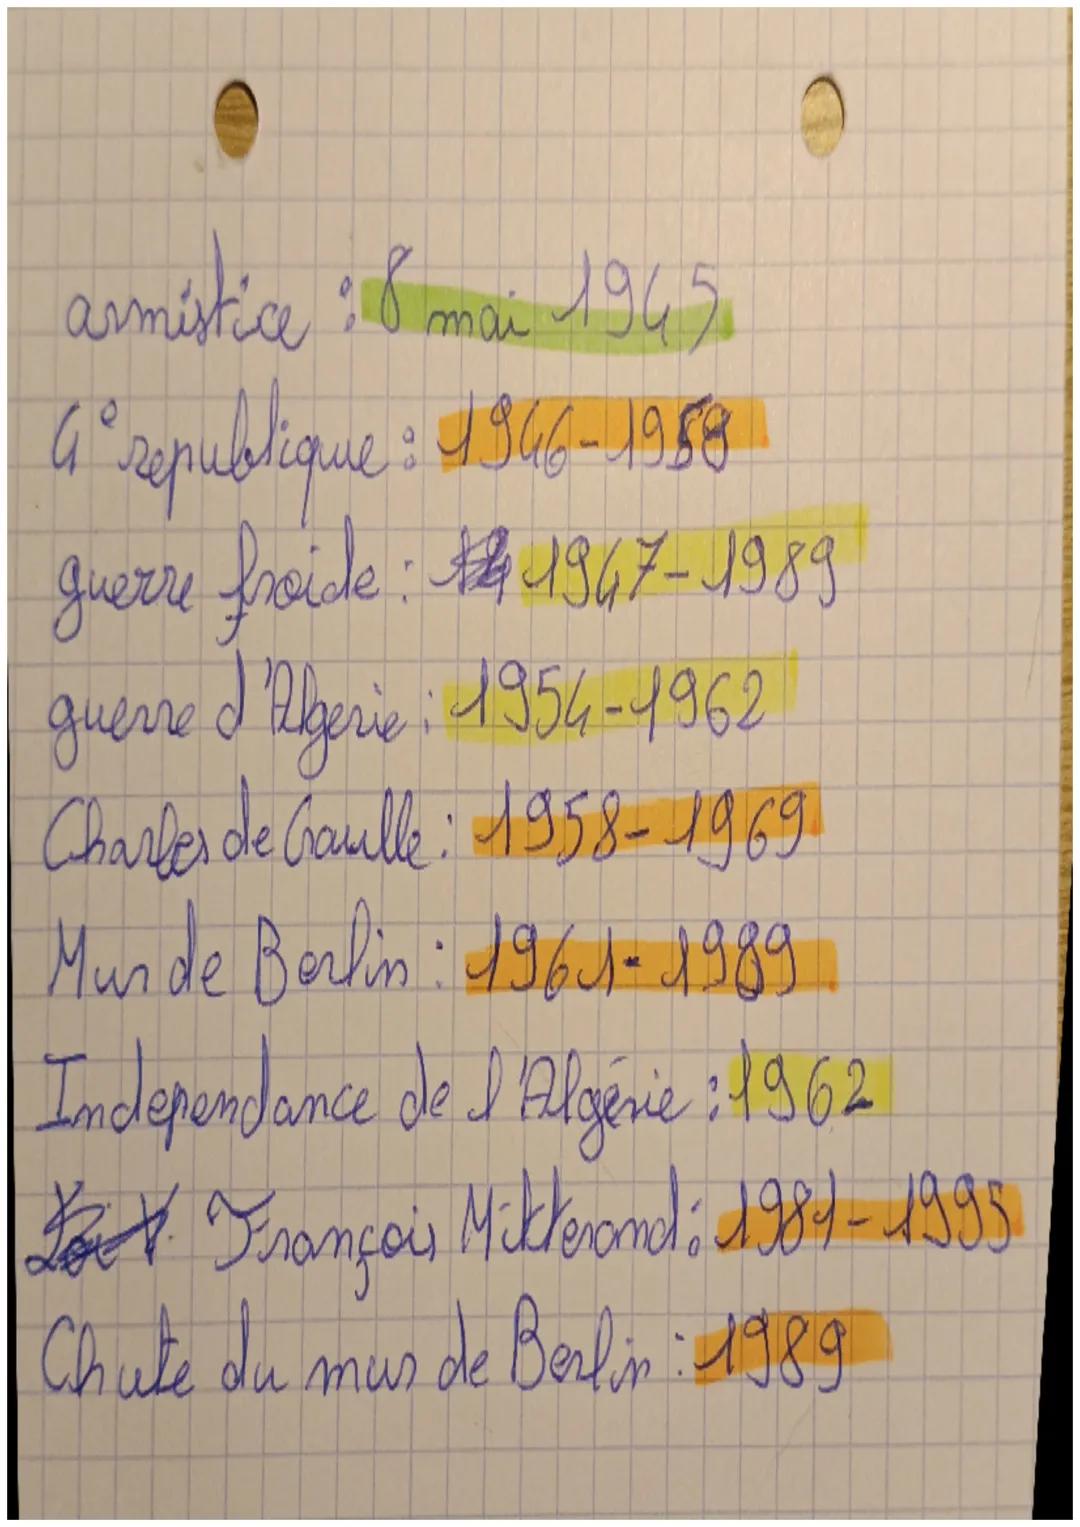 armistice : 8 mai 1945
4° republique : 1946-1958
guerre froide : 1947-1989
guerre d'Algerie : 1954-1962
Charles de Gaulle : 1958-1969
Mur de Berlin : 1961-1989
Independance de l'Algérie : 1962
François Mitterand : 1981-1995
Chute du mur de Berlin : 1989